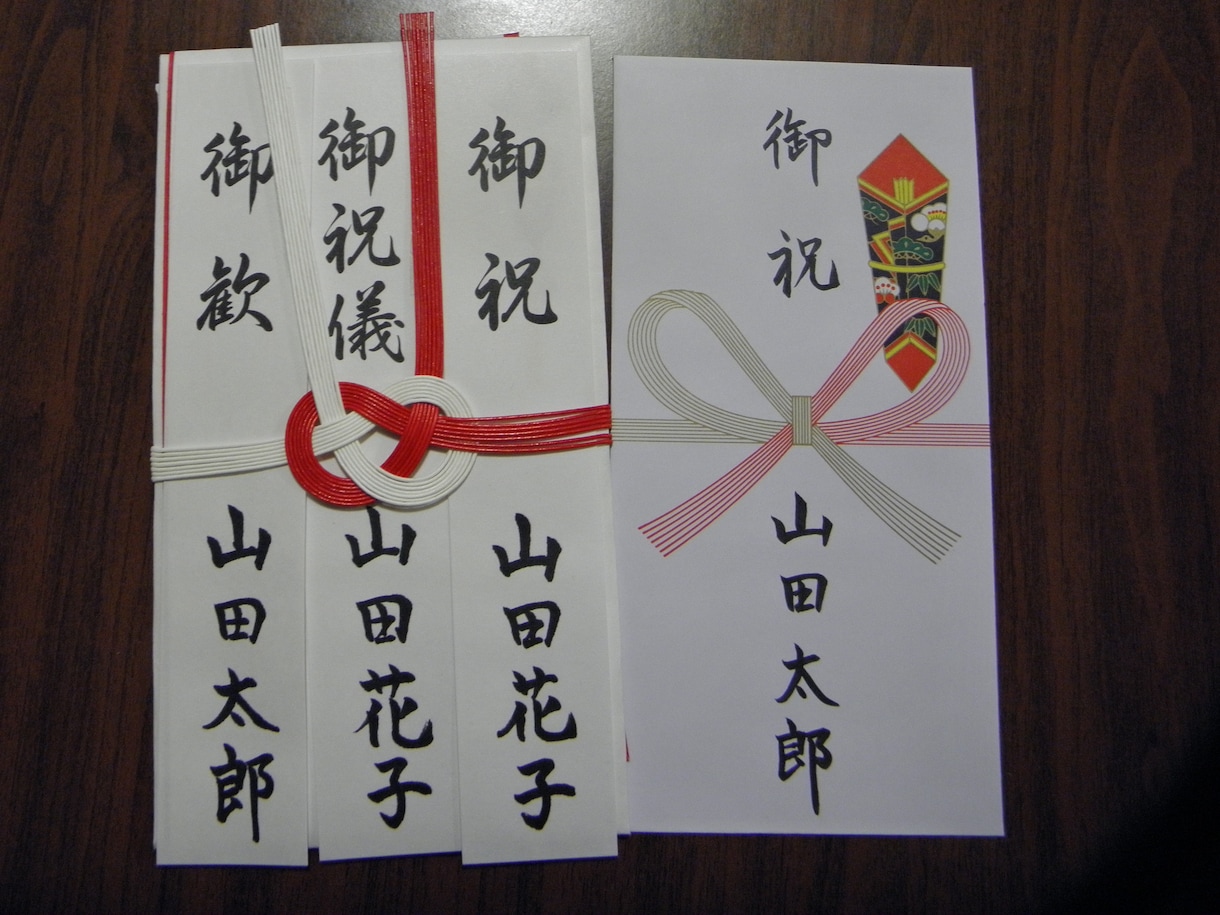 御祝
山田太郎
御祝
山田花子
御祝儀
山田花子
御歓
山田太郎